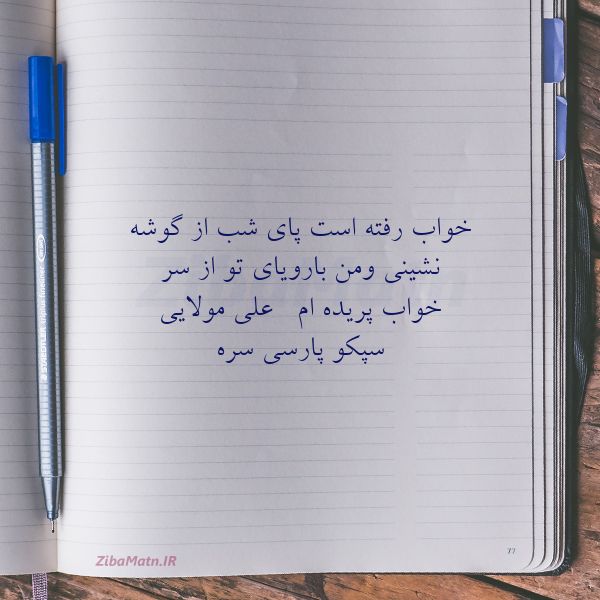 خواب رفته است پای شب از گوشه
نشینی ومن بارویای تو از سر
خواب پریده ام   علی مولایی
سپکو پارسی سره
ZibaMatn.IR
77